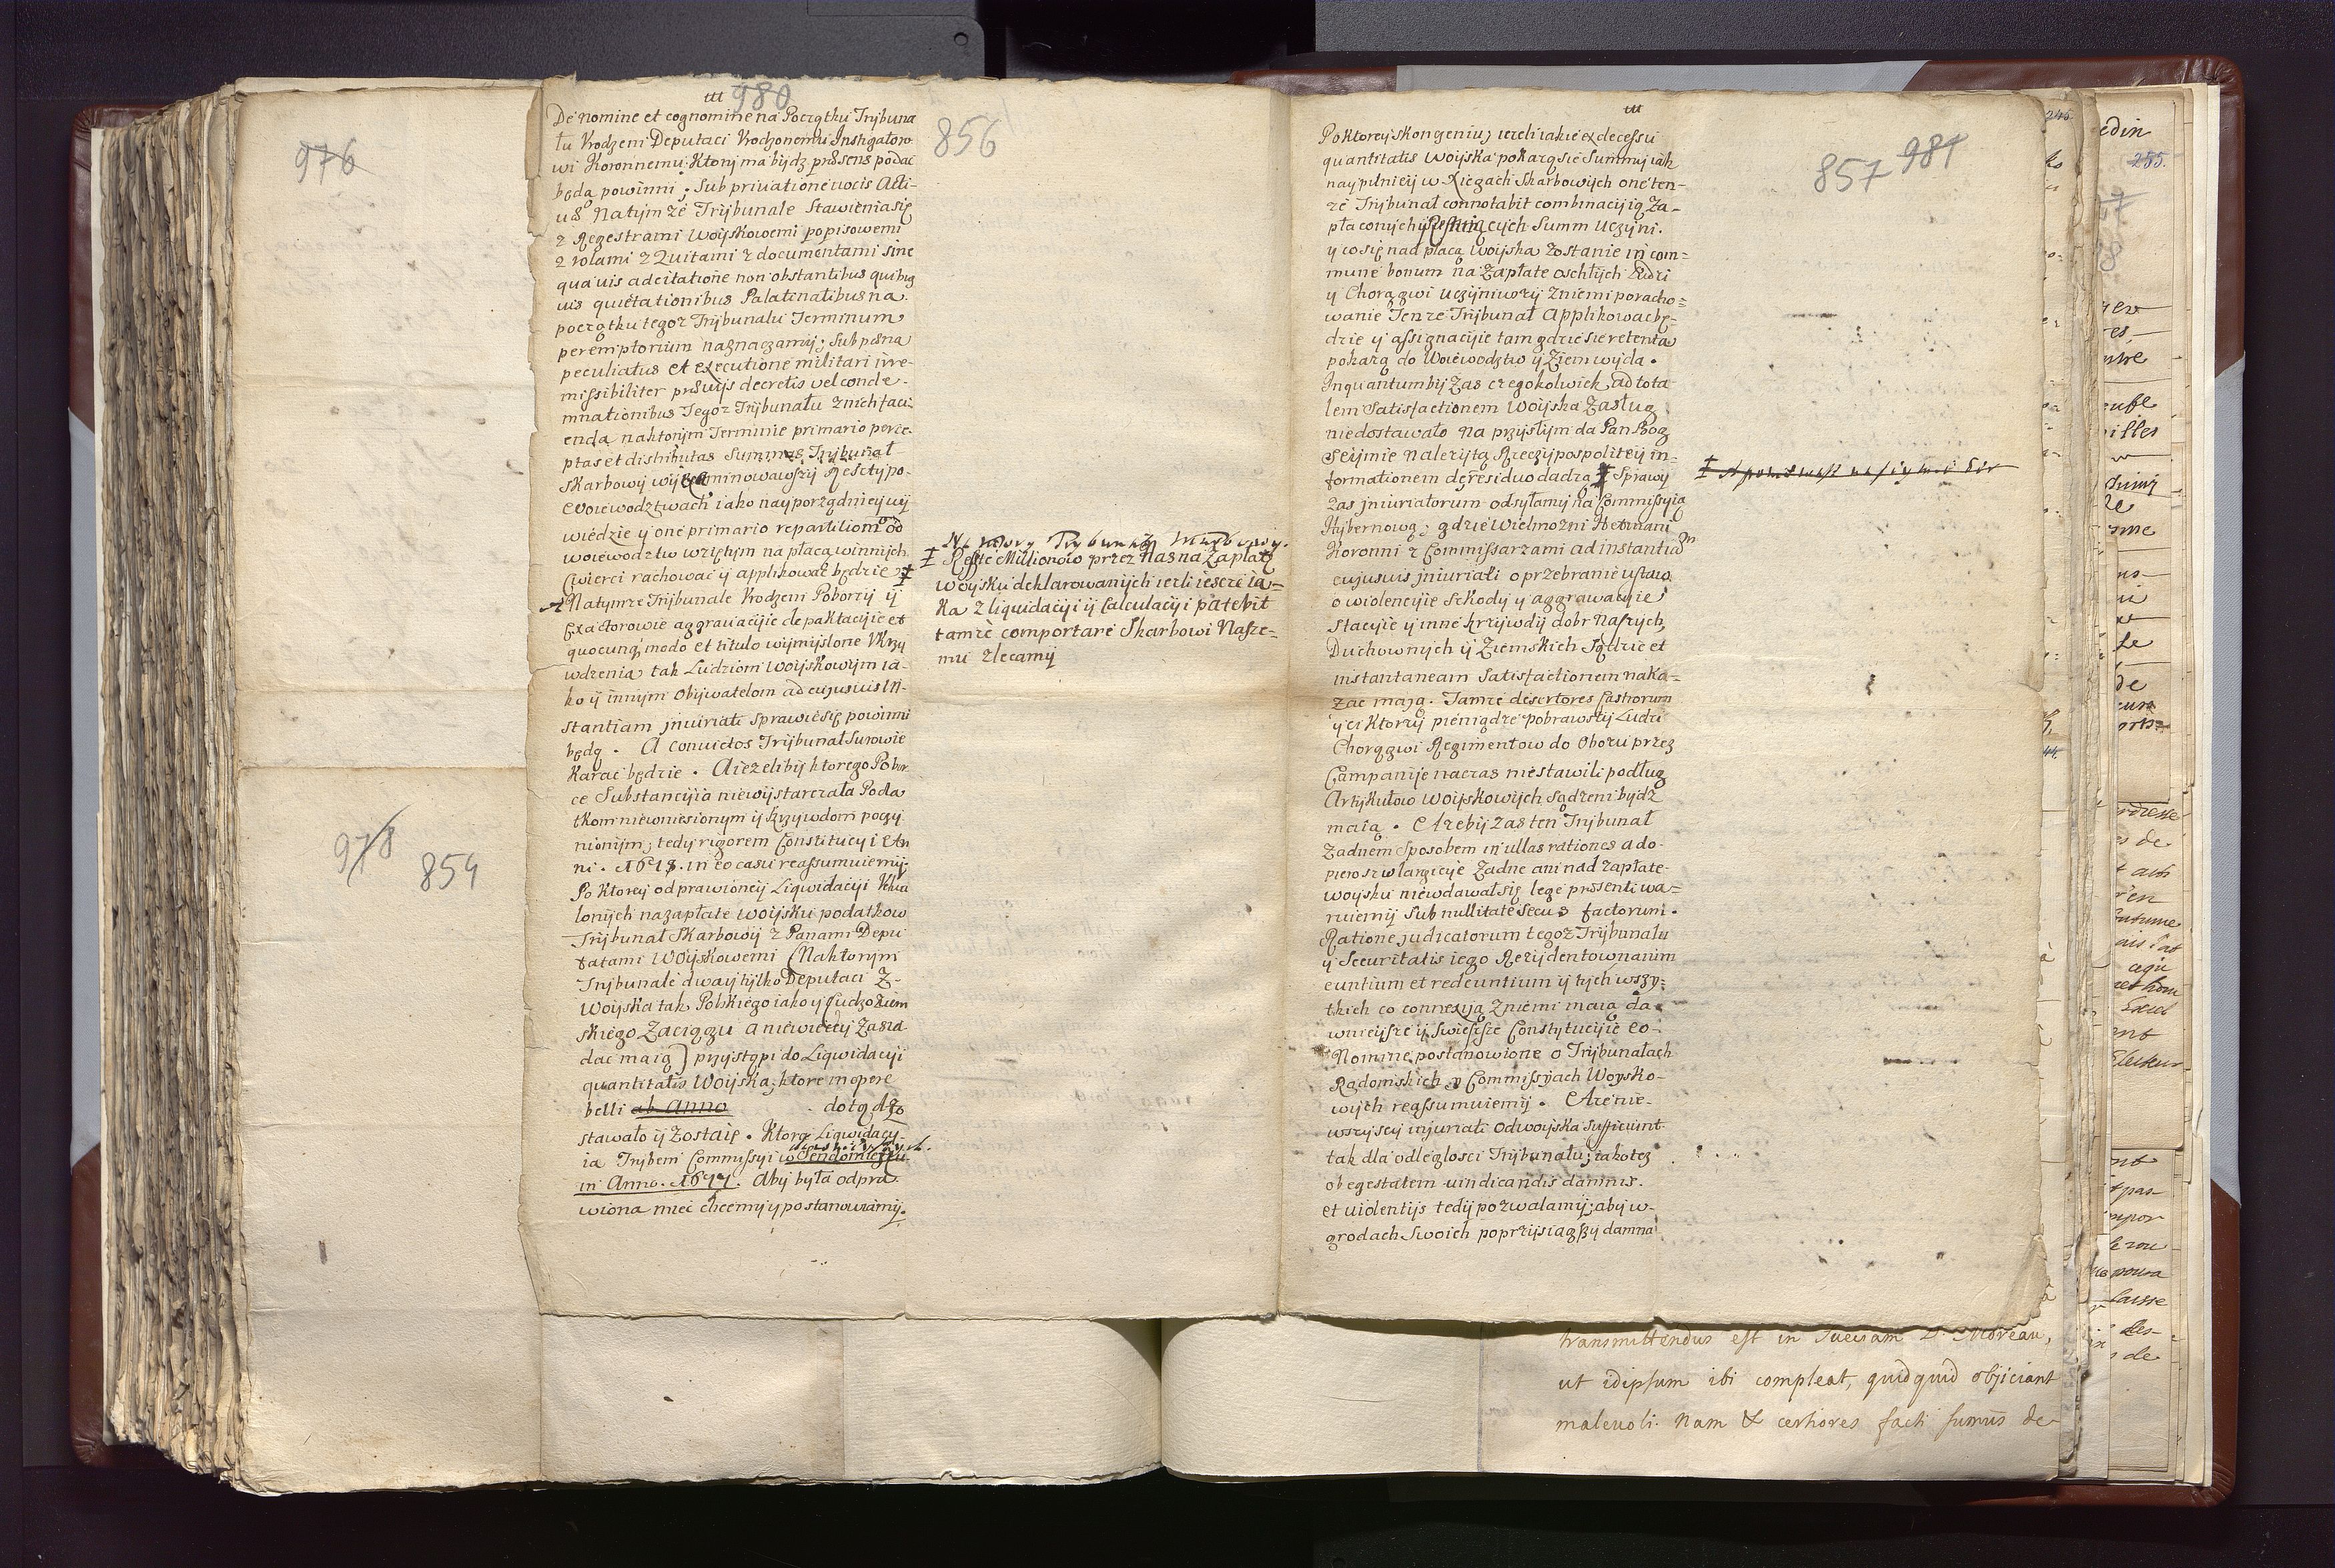 976
978
854
980
856
De nomine et cognomine na Początku Trijbuna
tu Vrodzeni Deputaci Vrodzonemu Instigatoro
wi Koronnemu Ktorij ma bijdz præsens podac
będą powinni; sub priuatione uocis Acti-
uæ Natijmze Trijbunale Stawienia się
z Regestrami Woijskowemi popisowemi
z rolami z Quitami z documentami sine
qua uis adcitatione non obstantibus quibus
uis quietationibus Palatinatibus na
początku tegoz Trijbunalu Terminum
peremptorium naznaczamij; sub pæna
peculiatus et executione militari irre-
missibiliter præuijs decretis vel conde-
mnationibus Tegoz Trijbunału z nich faci-
enda na ktorijm Terminie primario perce-
ptas et distributas Summas Trijbunał
Skarbowij wijexaminowawszij Resztij po
Woiewodztwach iako naijporządnieij wij
wiedzie ij one primario repartitiom od
woiewodztw wziętijm na płacą winnijch
Cwierci rachować ij applikować będzie ‡
Natijmze Trijbunale Vrodzeni Poborcij ij
Exactorowie aggrauacijie depaktacijie et
quocunq modo et titulo wijmijslone Vkrzij
wdzenia tak Ludziom Woijskowijm ia-
ko ij innijm Obijwatelom ad cujusuis In-
stantiam jniuriati sprawić się powinni
będą. A conuictos Trijbunał Surowie
Karać będzie. A iezelibij ktorego Pobor
ce Substancijia niewijstarczała Poda
tkom niewniesionijm ij Krzijwdom poczij
nionijm; tedij rigorem Constitucij i An
ni. 1678. in eo casu reassumuiemij.
Po Ktoreij odprawioneij Liqwidacij i Vchwa
lonijch na zapłate woijsku podatkow
Trijbunał Skarbowij z Panami Depu
tatami Woijskowemi (Naktorijm
Trijbunale dwaij tijlko Deputaci Z-
Woijska tak Polskiego iako ij Cudzoziem
skiego Zaciągu a niewieceij Zasia
dac maią) przijstąpi do Liqwidacij i
quantitatis Woijska, ktore in opere
belli ab Anno dotądzo
stawało ij Zostaię. Ktorą Liqwidacij-
ia Trijbem Commissij i w Sendomierzu
in Anno. 1677. Abij była odpra
wiona mieć chcemij ij postanowiamij.
‡ Reszte Millionow przez Nas na Zapłatę
Woijsku deklarowanijch iezli ieszcze ia-
ka z liquidacij i ij Calculacij i patebit
tamze comportare Skarbowi Nasze-
mu zlecamij
857 981
Po Ktoreij skongeniu; iezeli iakie ex decessu
quantitatis Woijska pokazą sie Summij iak
naijpilnieij w Xięgach Skarbowijch one ten-
ze Trijbunał connotabit combinacijią Za-
płaconijch ij Restuiących Summ uczijni.
ij co się nad płacą Woijska Zostanie in com-
mune bonum na Zapłate oschłijch Ludzi
ij Chorągwi uczijniwszij z niemi poracho-
wanie Tenze Trijbunał Applikować bę-
dzie ij assignacijie tam gdzie sie retenta
pokazą do Woiewodztw ij Ziem wijda.
Inquantum bij Zas czegokolwiek ad tota
lem Satisfactionem Woijska Zasług
niedostawało na przijszłijm da Pan Bog
Seijmie należijtą Rzeczijpospoliteij in-
formationem de residuo dadzą ‡ Sprawij
Zas jniuriatorum odsyłamij na Commissyią
Hijbernową; gdzie Wielmozni Hetmani
Koronni z Commissarzami ad instantiam
cujusuis jniuriati o przebranie ustaw
o wiolencijie Szkodij ij aggrawacijie
Stacijie ij inne krzijwdij dobr Naszijch,
Duchownijch ij Ziemskich Sądzić et
instantaneam Satisfactionem naka-
zać mają. Tamze desertores Castrorum
ij ci Ktorzij pieniądze pobrawszij Ludzi
Chorągwi Regimentow do Obozu przez
Campanije na czas nie stawili podług
Artijkułow Woijskowijch sądzeni bijdz
maią. A zebij zas ten Trijbunał
Zadnem Sposobem in ullas rationes a do-
piero sz w largicije Zadne ani nad zapłate
woijsku niewdawał się lege præsenti wa-
ruiemij Sub nullitate secus factorum.
Ratione judicatorum tegoz Trijbunału
ij Securitatis iego Rezijdentow nanim
euntium et redeuntium ij tijch wszij-
tkich co connexyą z niemi maią da-
wnieijsze ij swieższe Constijtucijie eo-
Nomine postanowione o Trijbunałach
Radomskich ij Commissijach Woijsko-
wijch reassumuiemij. A ze nie-
wszijscij injuriati od woijska sufficiunt
tak dla odległosci Trijbunału; iako tez
ob egestatem uindicandis damnis.
et uiolentijs tedij pozwalamij; abij w-
grodach Swoich poprzijsiągszij damna
transmittendus est in Sueciam D. Moreau,
ut idipsum ibi compleat, quidquid objiciant
maleuoli. Nam & certiores facti sumus de-